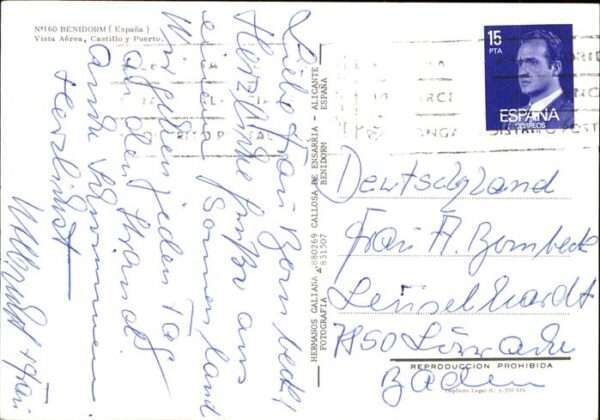 Nº160 BENIDORM ( España )
Vista Aérea, Castillo y Puerto.
Liebe Frau Bombeck!
Herzliche Grüße aus
einem Sonnenland
Wir gehen jeden Tag
an den Strand
Herzlichst
HERMANOS GALIANA 880269 CALLOSA DE ENSARRIA - ALICANTE
FOTOGRAFIA 831507 BENIDORM ESPAÑA
15
PTA
ESPAÑA
CORREOS
Deutschland
Frau A. Bombeck
7850 Lörrach
Baden
REPRODUCCION PROHIBIDA